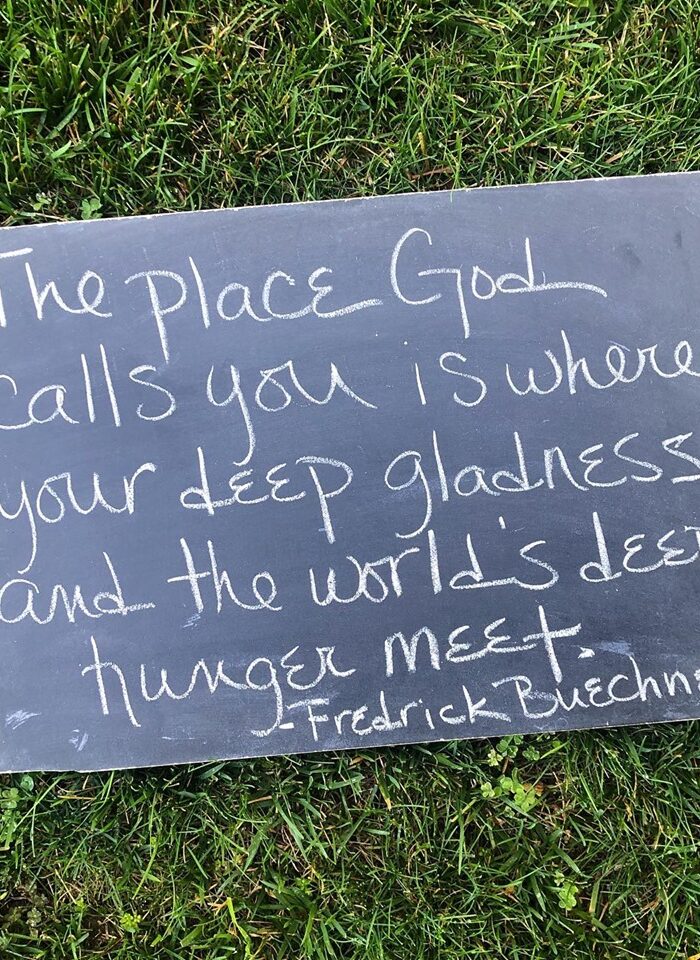 The place God
calls you is where
your deep gladness
and the world's deep
hunger meet.
-Fredrick Buechne